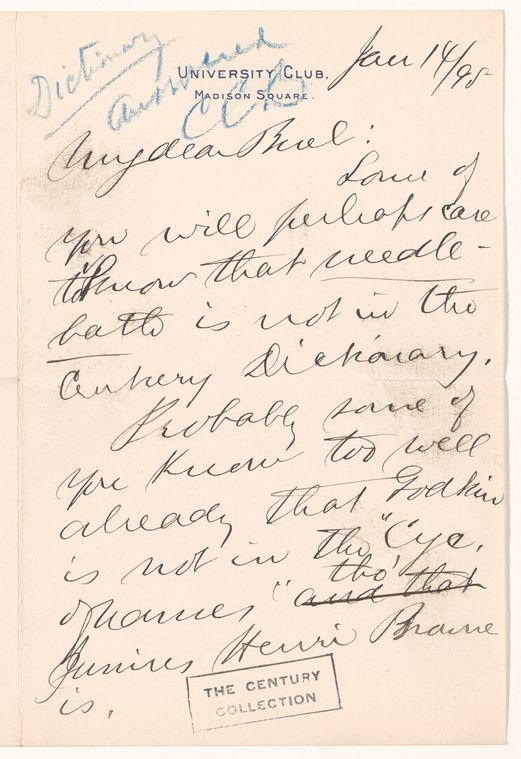 Dictionary
Answered
CCB
UNIVERSITY CLUB,
MADISON SQUARE.
Jan 14/95
My dear Buel:
Some of
you will perhaps care
to know that needle-
bath is not in the
Century Dictionary.
Probably some of
you know too well
already that Godkin
is not in the "Cyc.
of names" and that
tho'
Junius Henri Browne
is.
THE CENTURY
COLLECTION